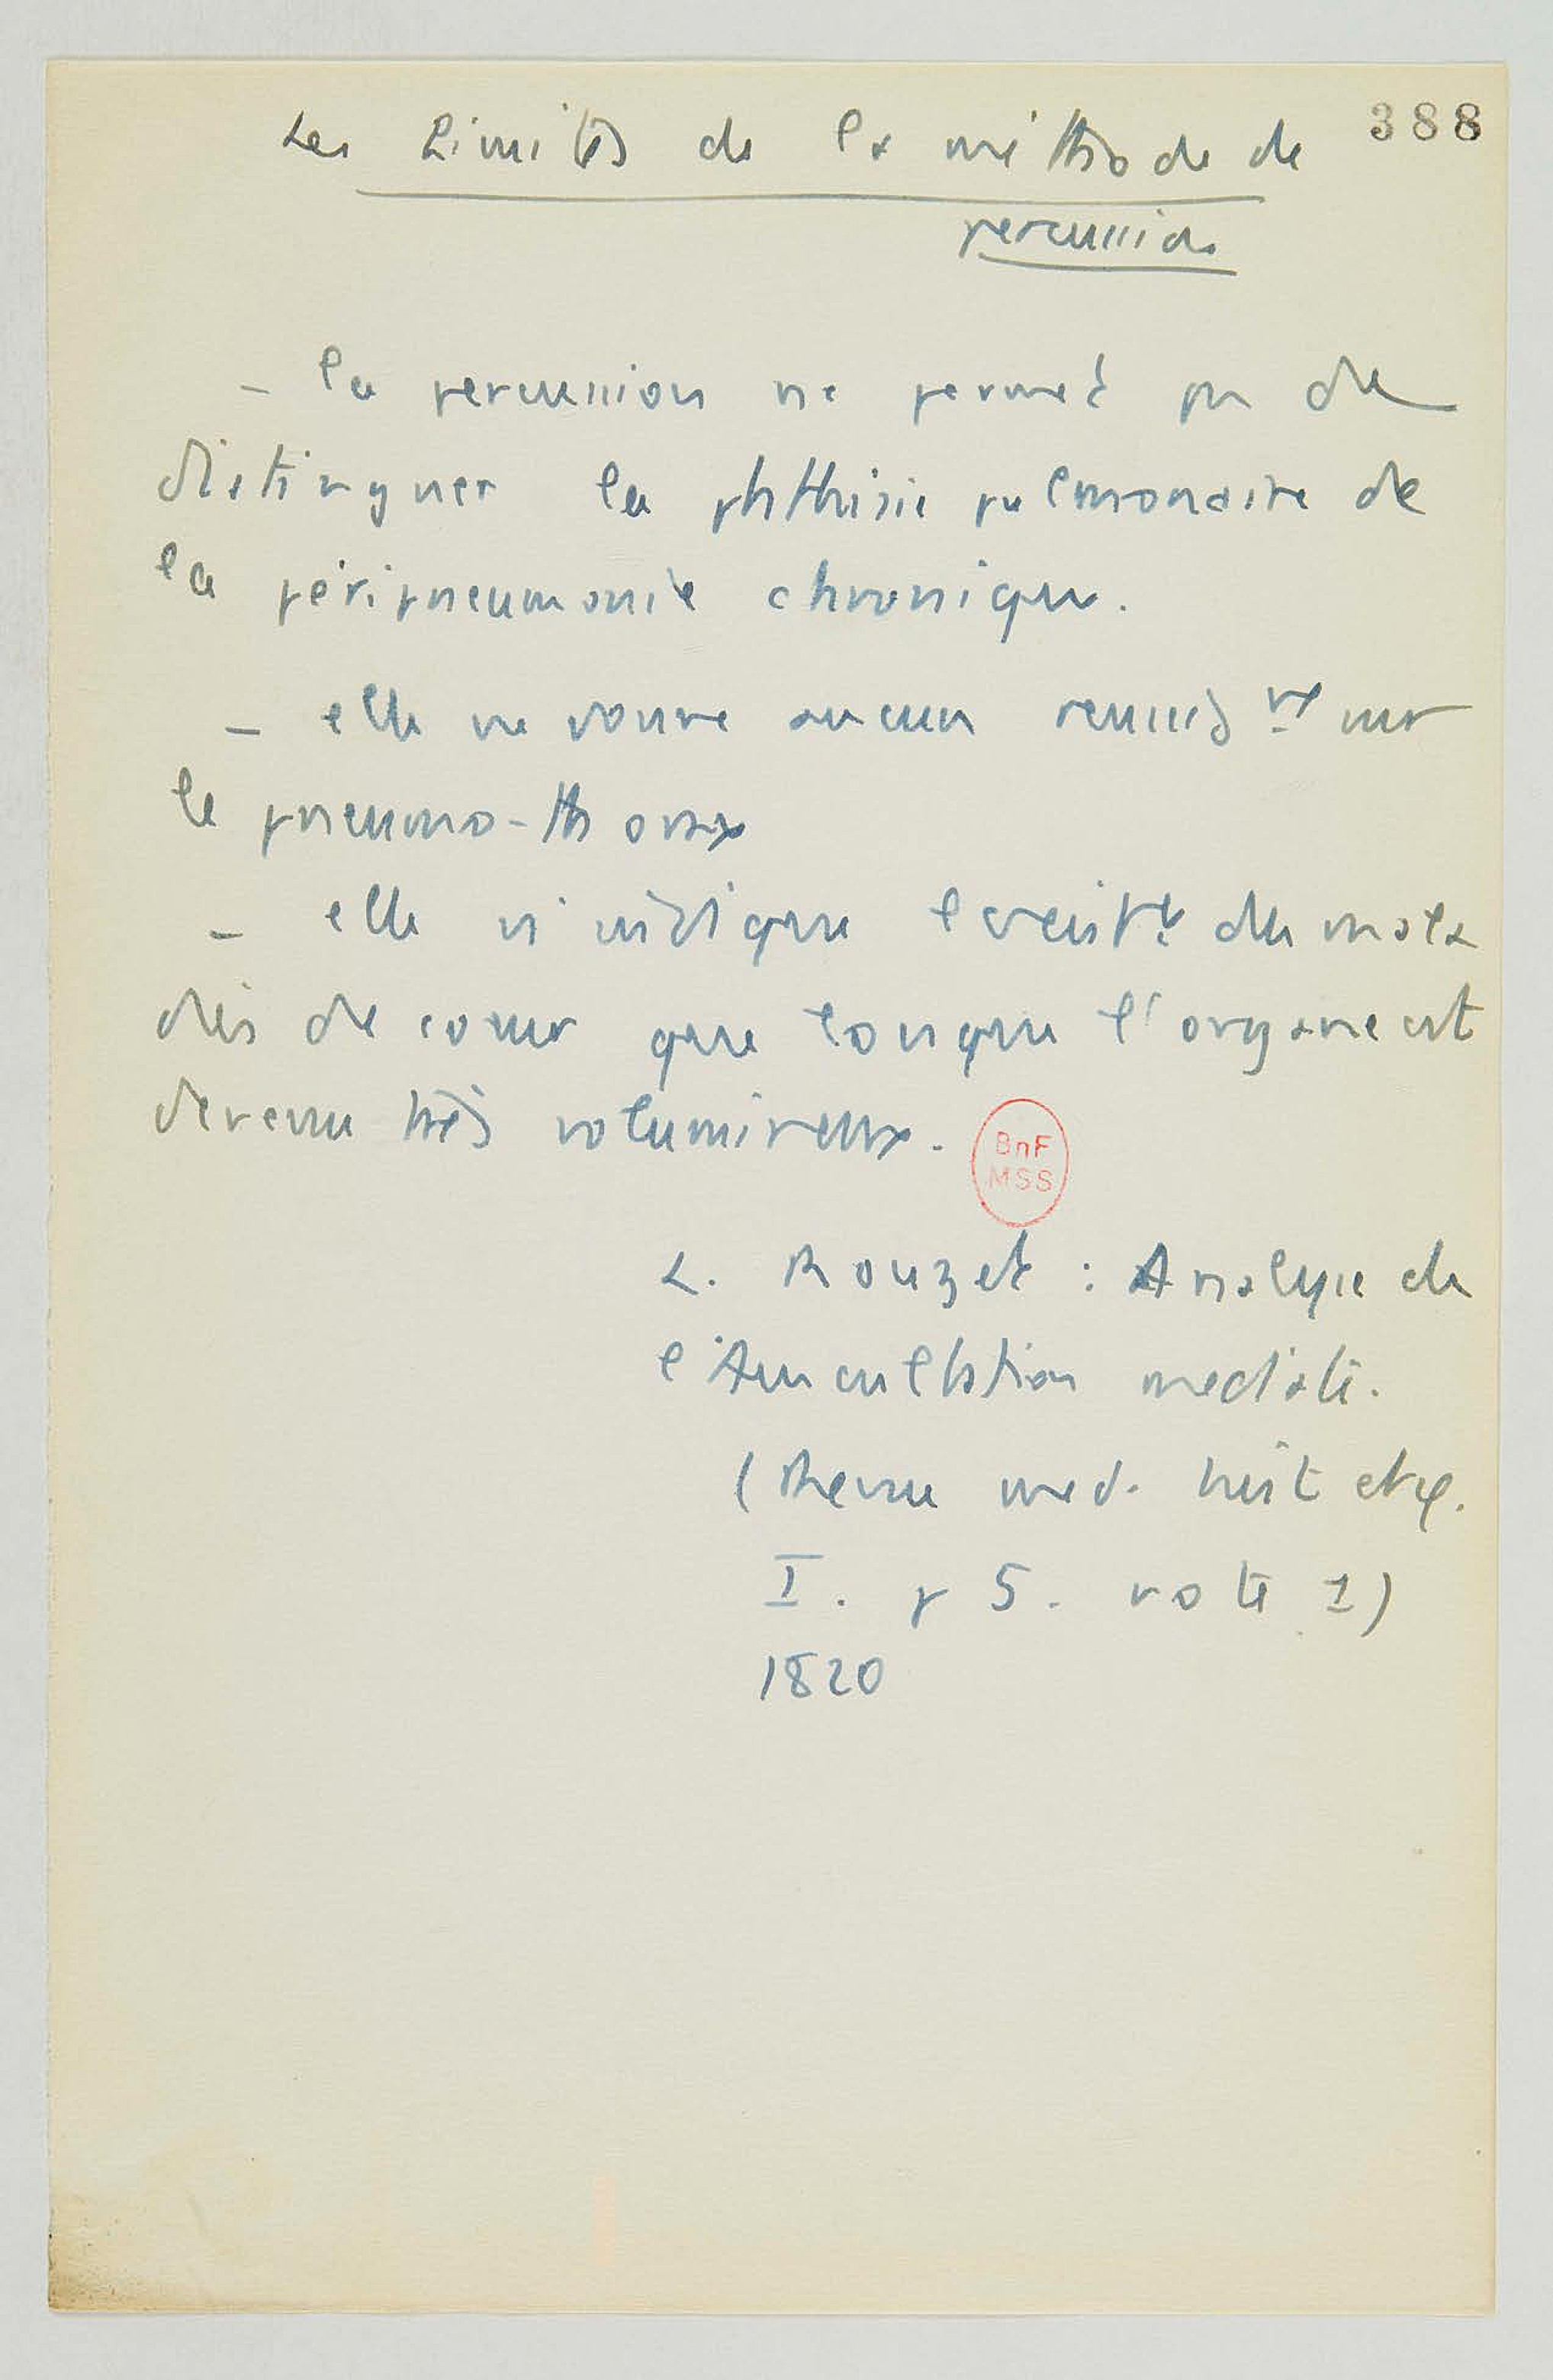 388
Les Limites de la méthode de
percussion
- la percussion ne permet pas de
distinguer la phthisie pulmonaire de
la péripneumonie chronique.
- elle ne donne aucun renseigt sur
le pneumo-thorax
- elle n'indique l'existe des mala
dies de coeur que lorsque l'organe est
devenu très volumineux.
BnF
MSS
L. Rouzet : Analyse de
l'Auscultation mediate.
(Revue med. hist et φ.
I. p 5. note 1)
1820